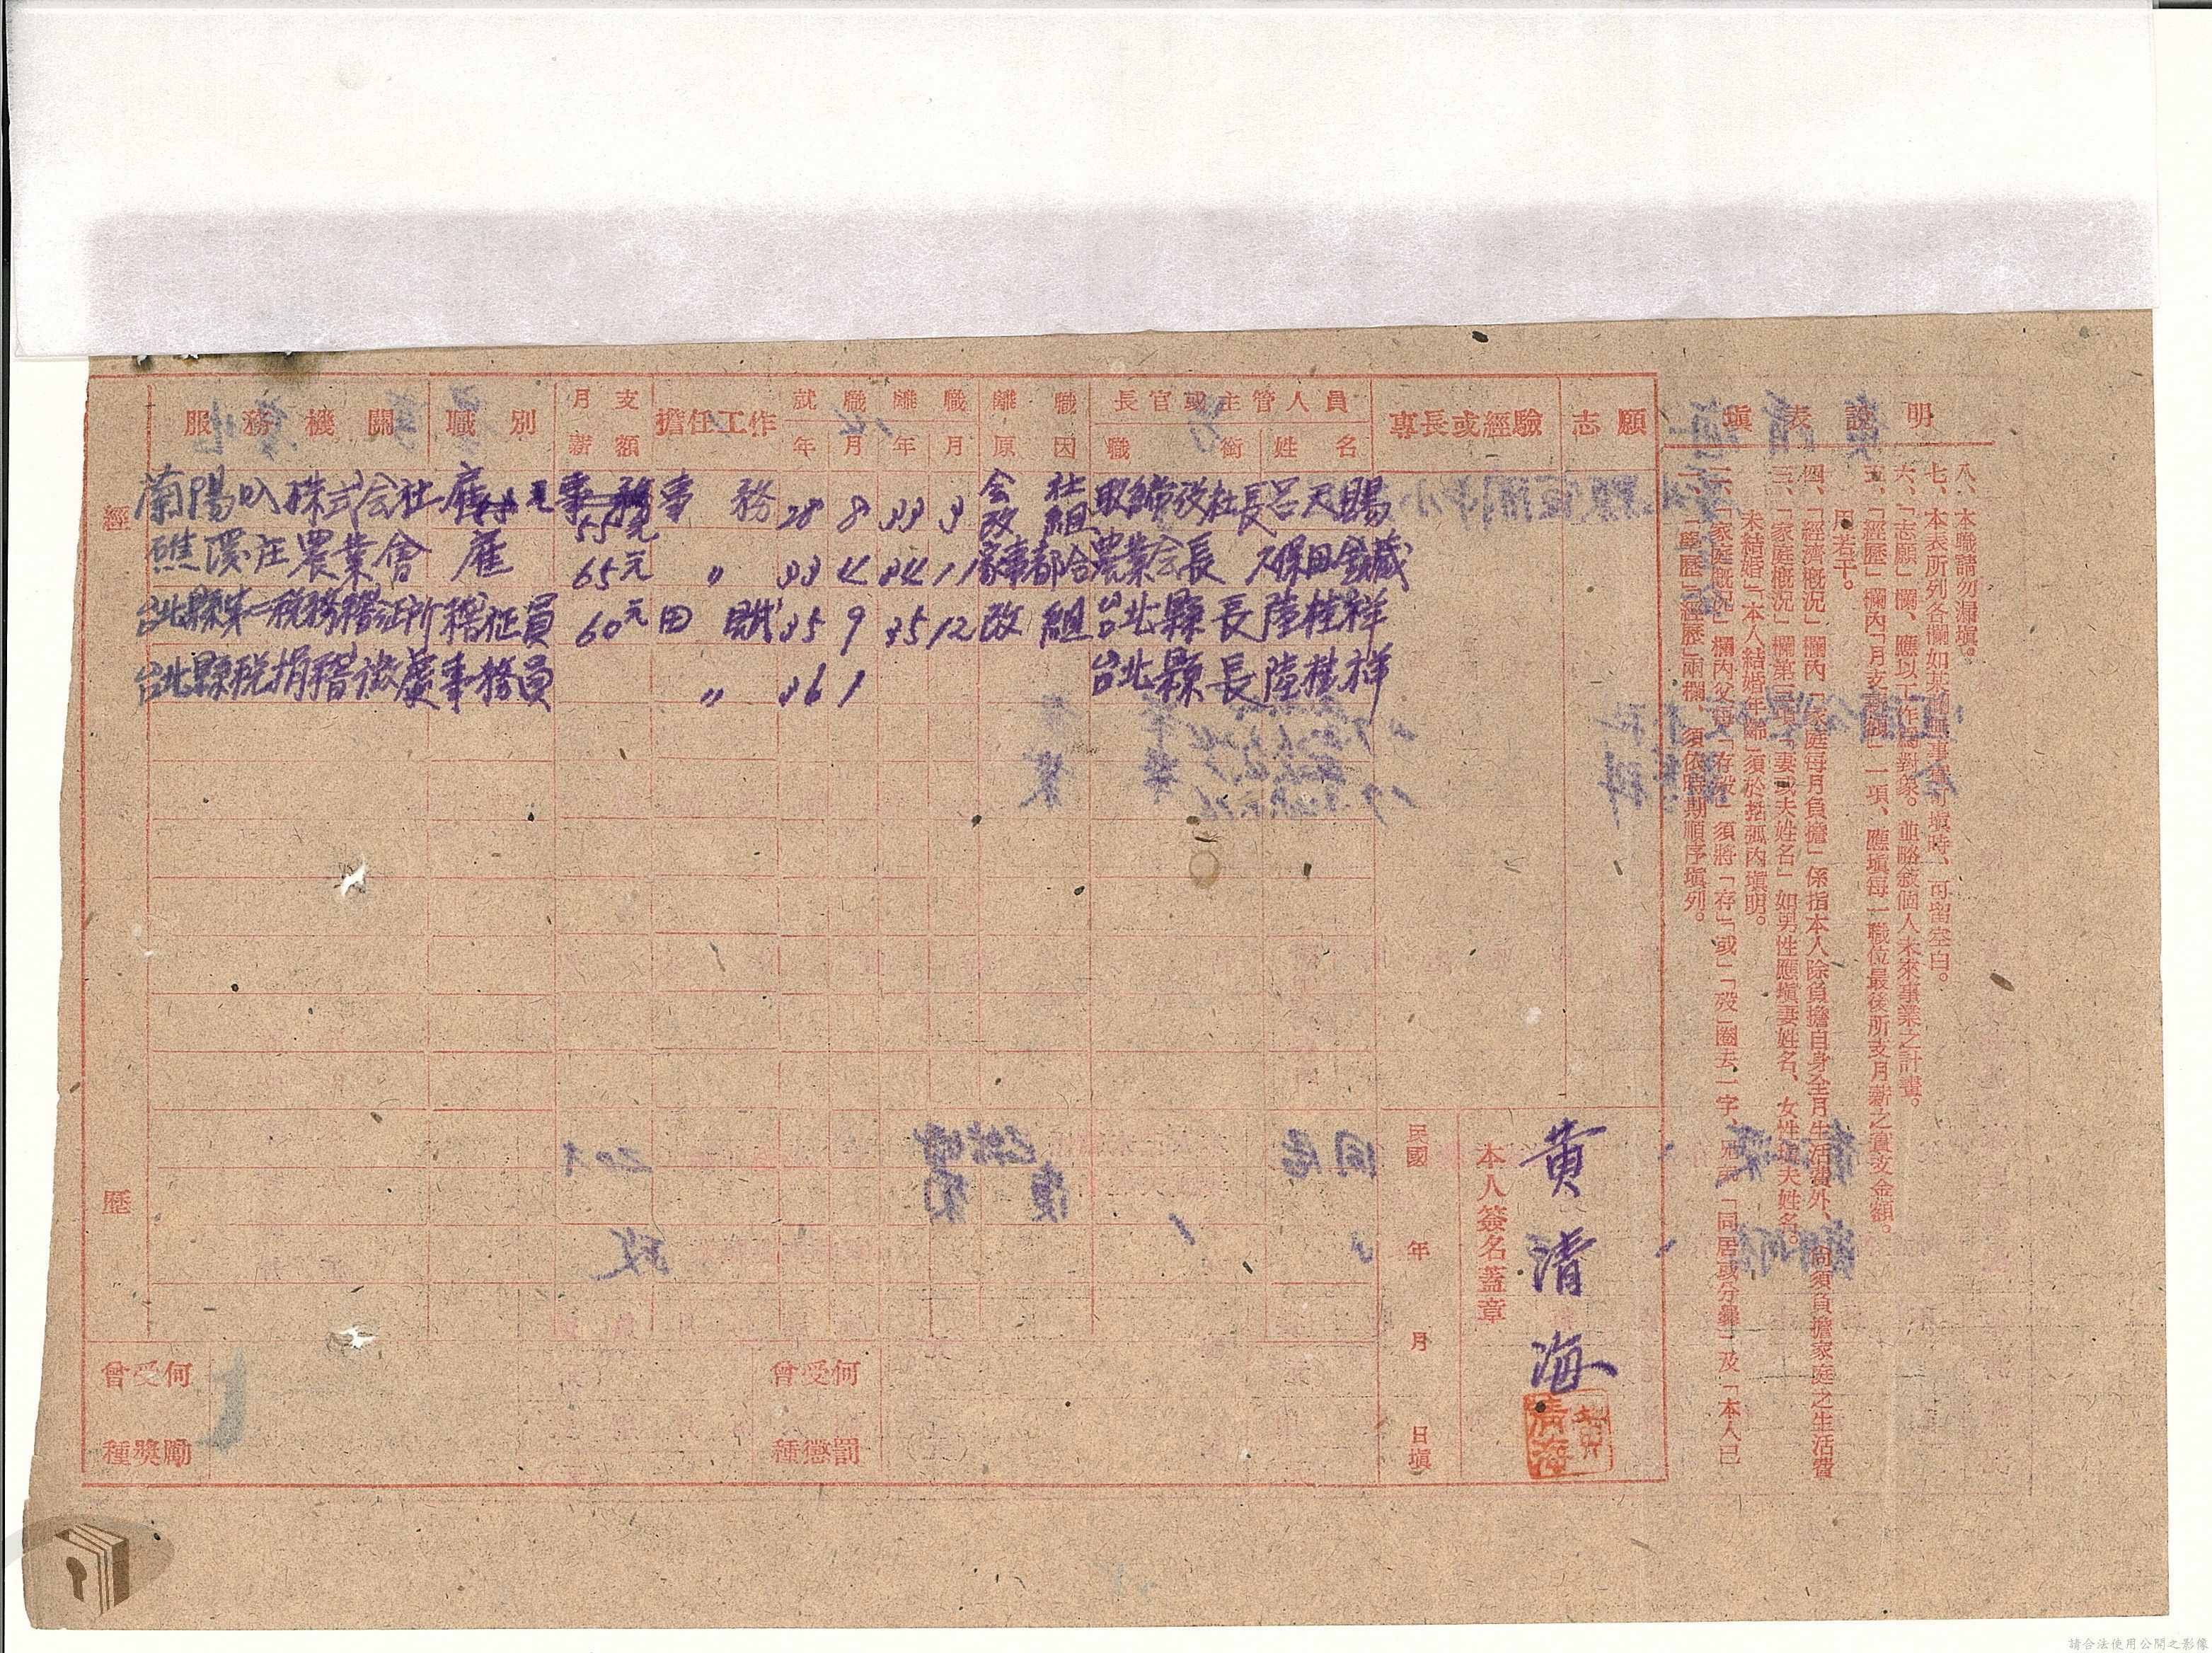 服務機關 職別 月支薪額 擔任工作 就職年月 離職年月 離職原因 長官或主管人員 職銜 姓名 專長或經驗 志願
經歷
蘭陽 株式会社 雇 55元 事務 28 8 33 3 会社改組 社長 呂天賜
礁溪庄農業會 雇 65元 〃 33 4 34 11 家事都合 農業会長 久保田
台北縣第二稅務稽征所 稽征員 60元 田賦 35 9 35 12 改組 台北縣長 陸桂祥
台北縣稅捐稽徵處 事務員 〃 36 1 台北縣長 陸桂祥
曾受何種獎勵
曾受何種懲罰
民國 年 月 日填
本人簽名蓋章
黄清海
黃清海
填表說明
一、「學歷」「經歷」兩欄、須依時期順序填列。
二、「家庭概況」欄內父母「存歿」須將「存」「或」「歿」圈去一字 「同居或分爨」及「本人已
未結婚」「本人結婚年齡」須於括弧內填明。
三、「家庭概況」欄第三項「妻或夫姓名」如男性應填妻姓名、女性填夫姓名。
四、「經濟概況」欄內「家庭每月負擔」係指本人除負擔自身全月生活費外、尚須負擔家庭之生活費
用若干。
五、「經歷」欄內「月支薪額」一項、應填每一職位最後所支月薪之實支金額。
六、「志願」欄、應以工作為對象。並略敘個人未來事業之計畫。
七、本表所列各欄如某欄無事實可填時、可留空白。
八、本職請勿漏填。
請合法使用公開之影像